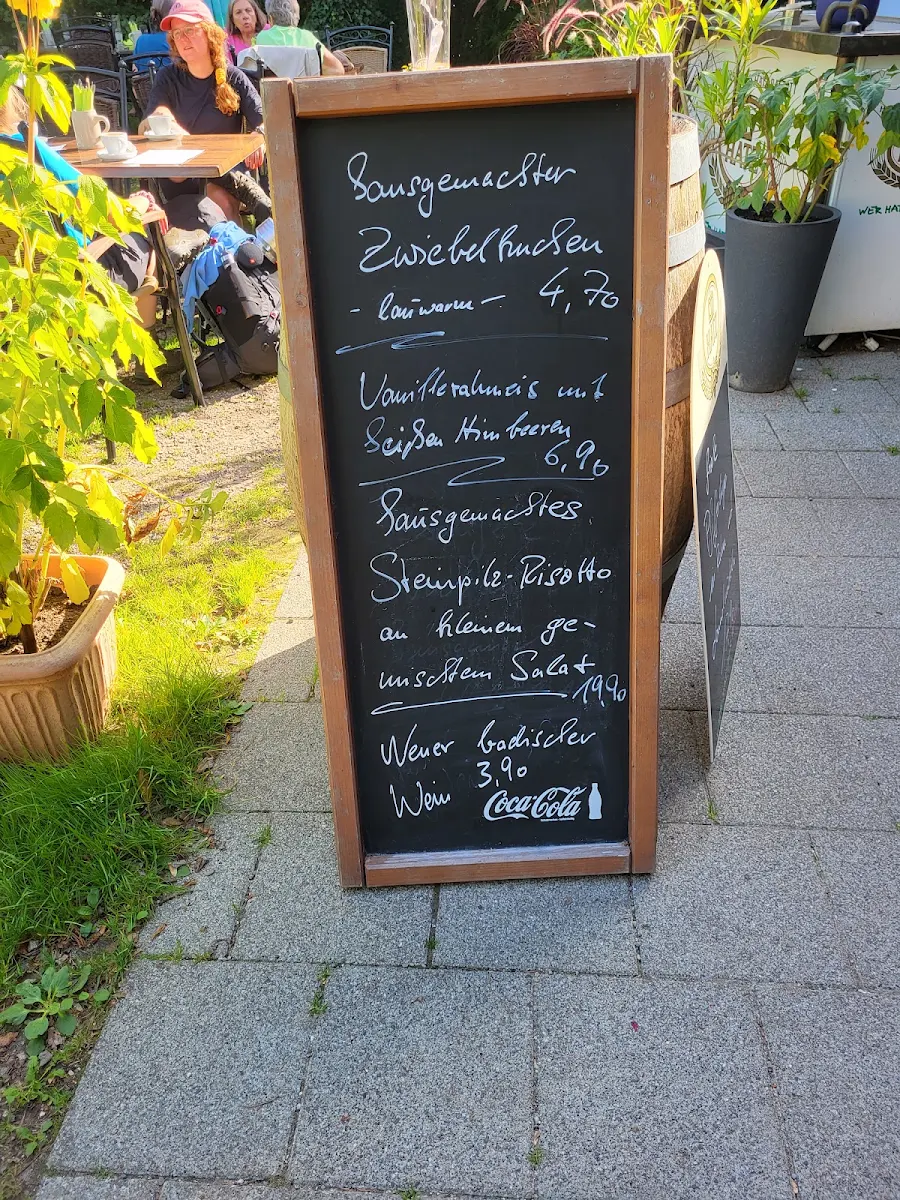 Hausgemachter
Zwiebelkuchen
- lauwarm - 4,70
Vanillerahmeis mit
heißen Himbeeren
6,90
Hausgemachtes
Steinpilz-Risotto
an kleinem ge-
mischtem Salat
19,90
Neuer badischer
3,90
Wein
Coca-Cola
WER HAT